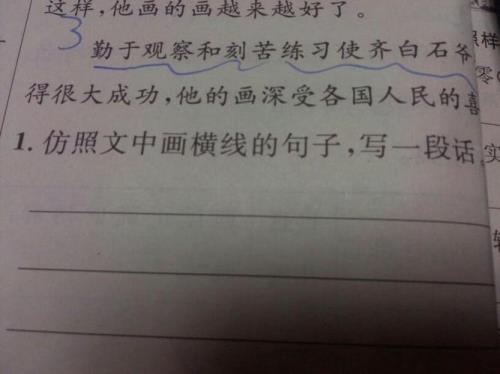 这样，他画的画越来越好了。
3
勤于观察和刻苦练习使齐白石爷
得很大成功，他的画深受各国人民的喜
1. 仿照文中画横线的句子，写一段话
样
零
实